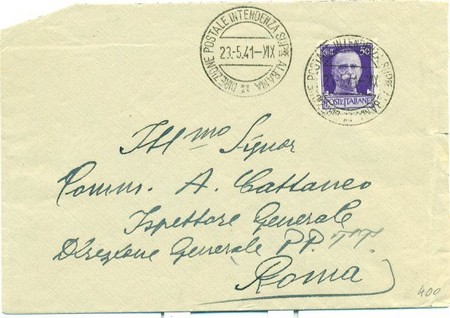 DIREZIONE POSTALE INTENDENZA SUPRE ALBANIA
23·5·41-XIX
50
POSTE ITALIANE
Ill mo Signor
Comm. A. Cattaneo
Ispettore Generale
Direzione Generale PP. TT.
Roma
400